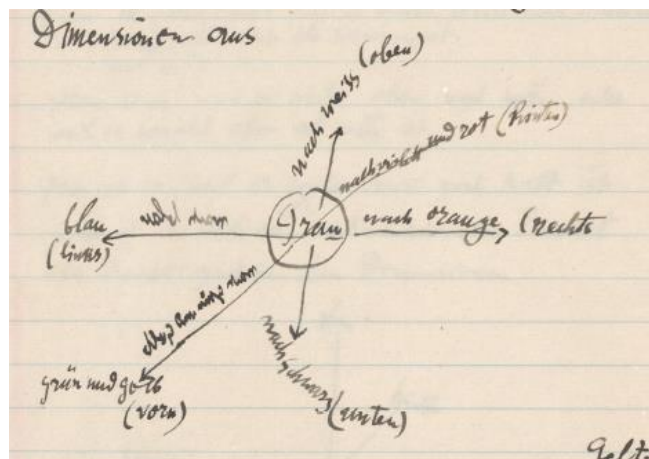 Dimensionen aus
nach weiss (oben)
nach violett und rot (hinten)
blau
(links)
Grau
nach orange (rechts
grün und gelb
(vorn)
nach schwarz (unten)